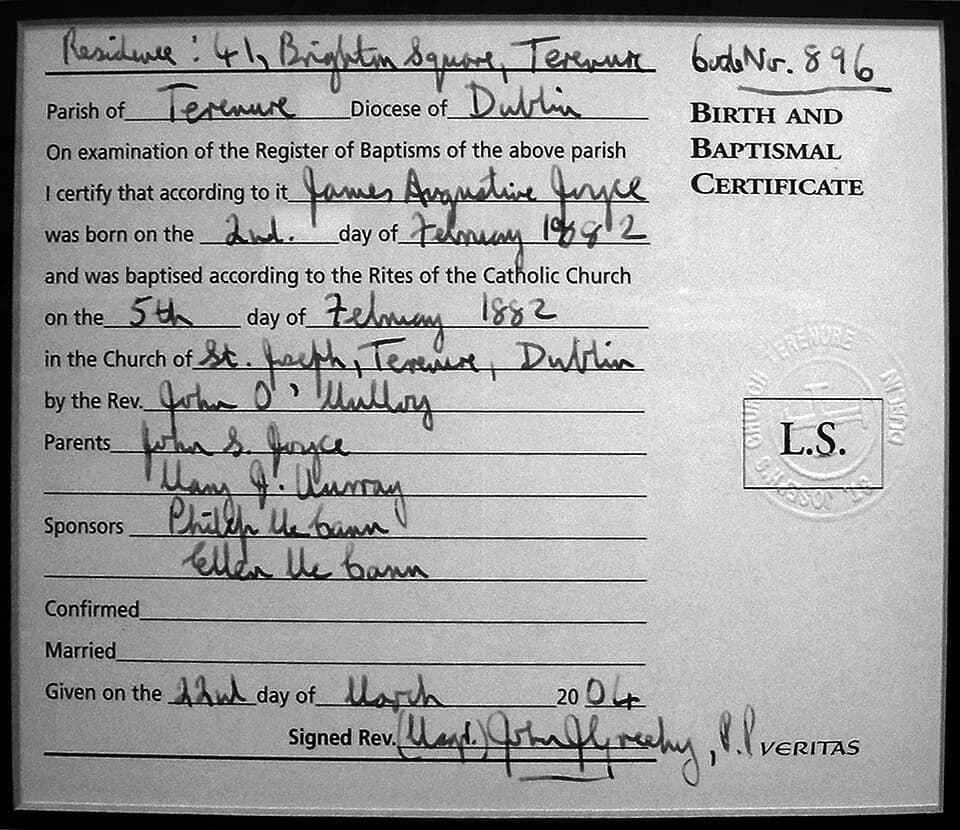 Residence: 41, Brighton Square, Terenure
No. 896
BIRTH AND
BAPTISMAL
CERTIFICATE
Parish of Terenure Diocese of Dublin
On examination of the Register of Baptisms of the above parish
I certify that according to it James Augustine Joyce
was born on the 2nd. day of February 1882
and was baptised according to the Rites of the Catholic Church
on the 5th day of February 1882
in the Church of St. Joseph, Terenure, Dublin
by the Rev. John O'Mulloy
Parents John S. Joyce
Mary J. Murray
Sponsors Philip Mc Cann
Ellen Mc Cann
Confirmed
Married
Given on the 22nd day of March 2004
Signed Rev. (Msgr.) John J Greehy, P.P
VERITAS
L.S.
ST. JOSEPH'S CHURCH TERENURE DUBLIN